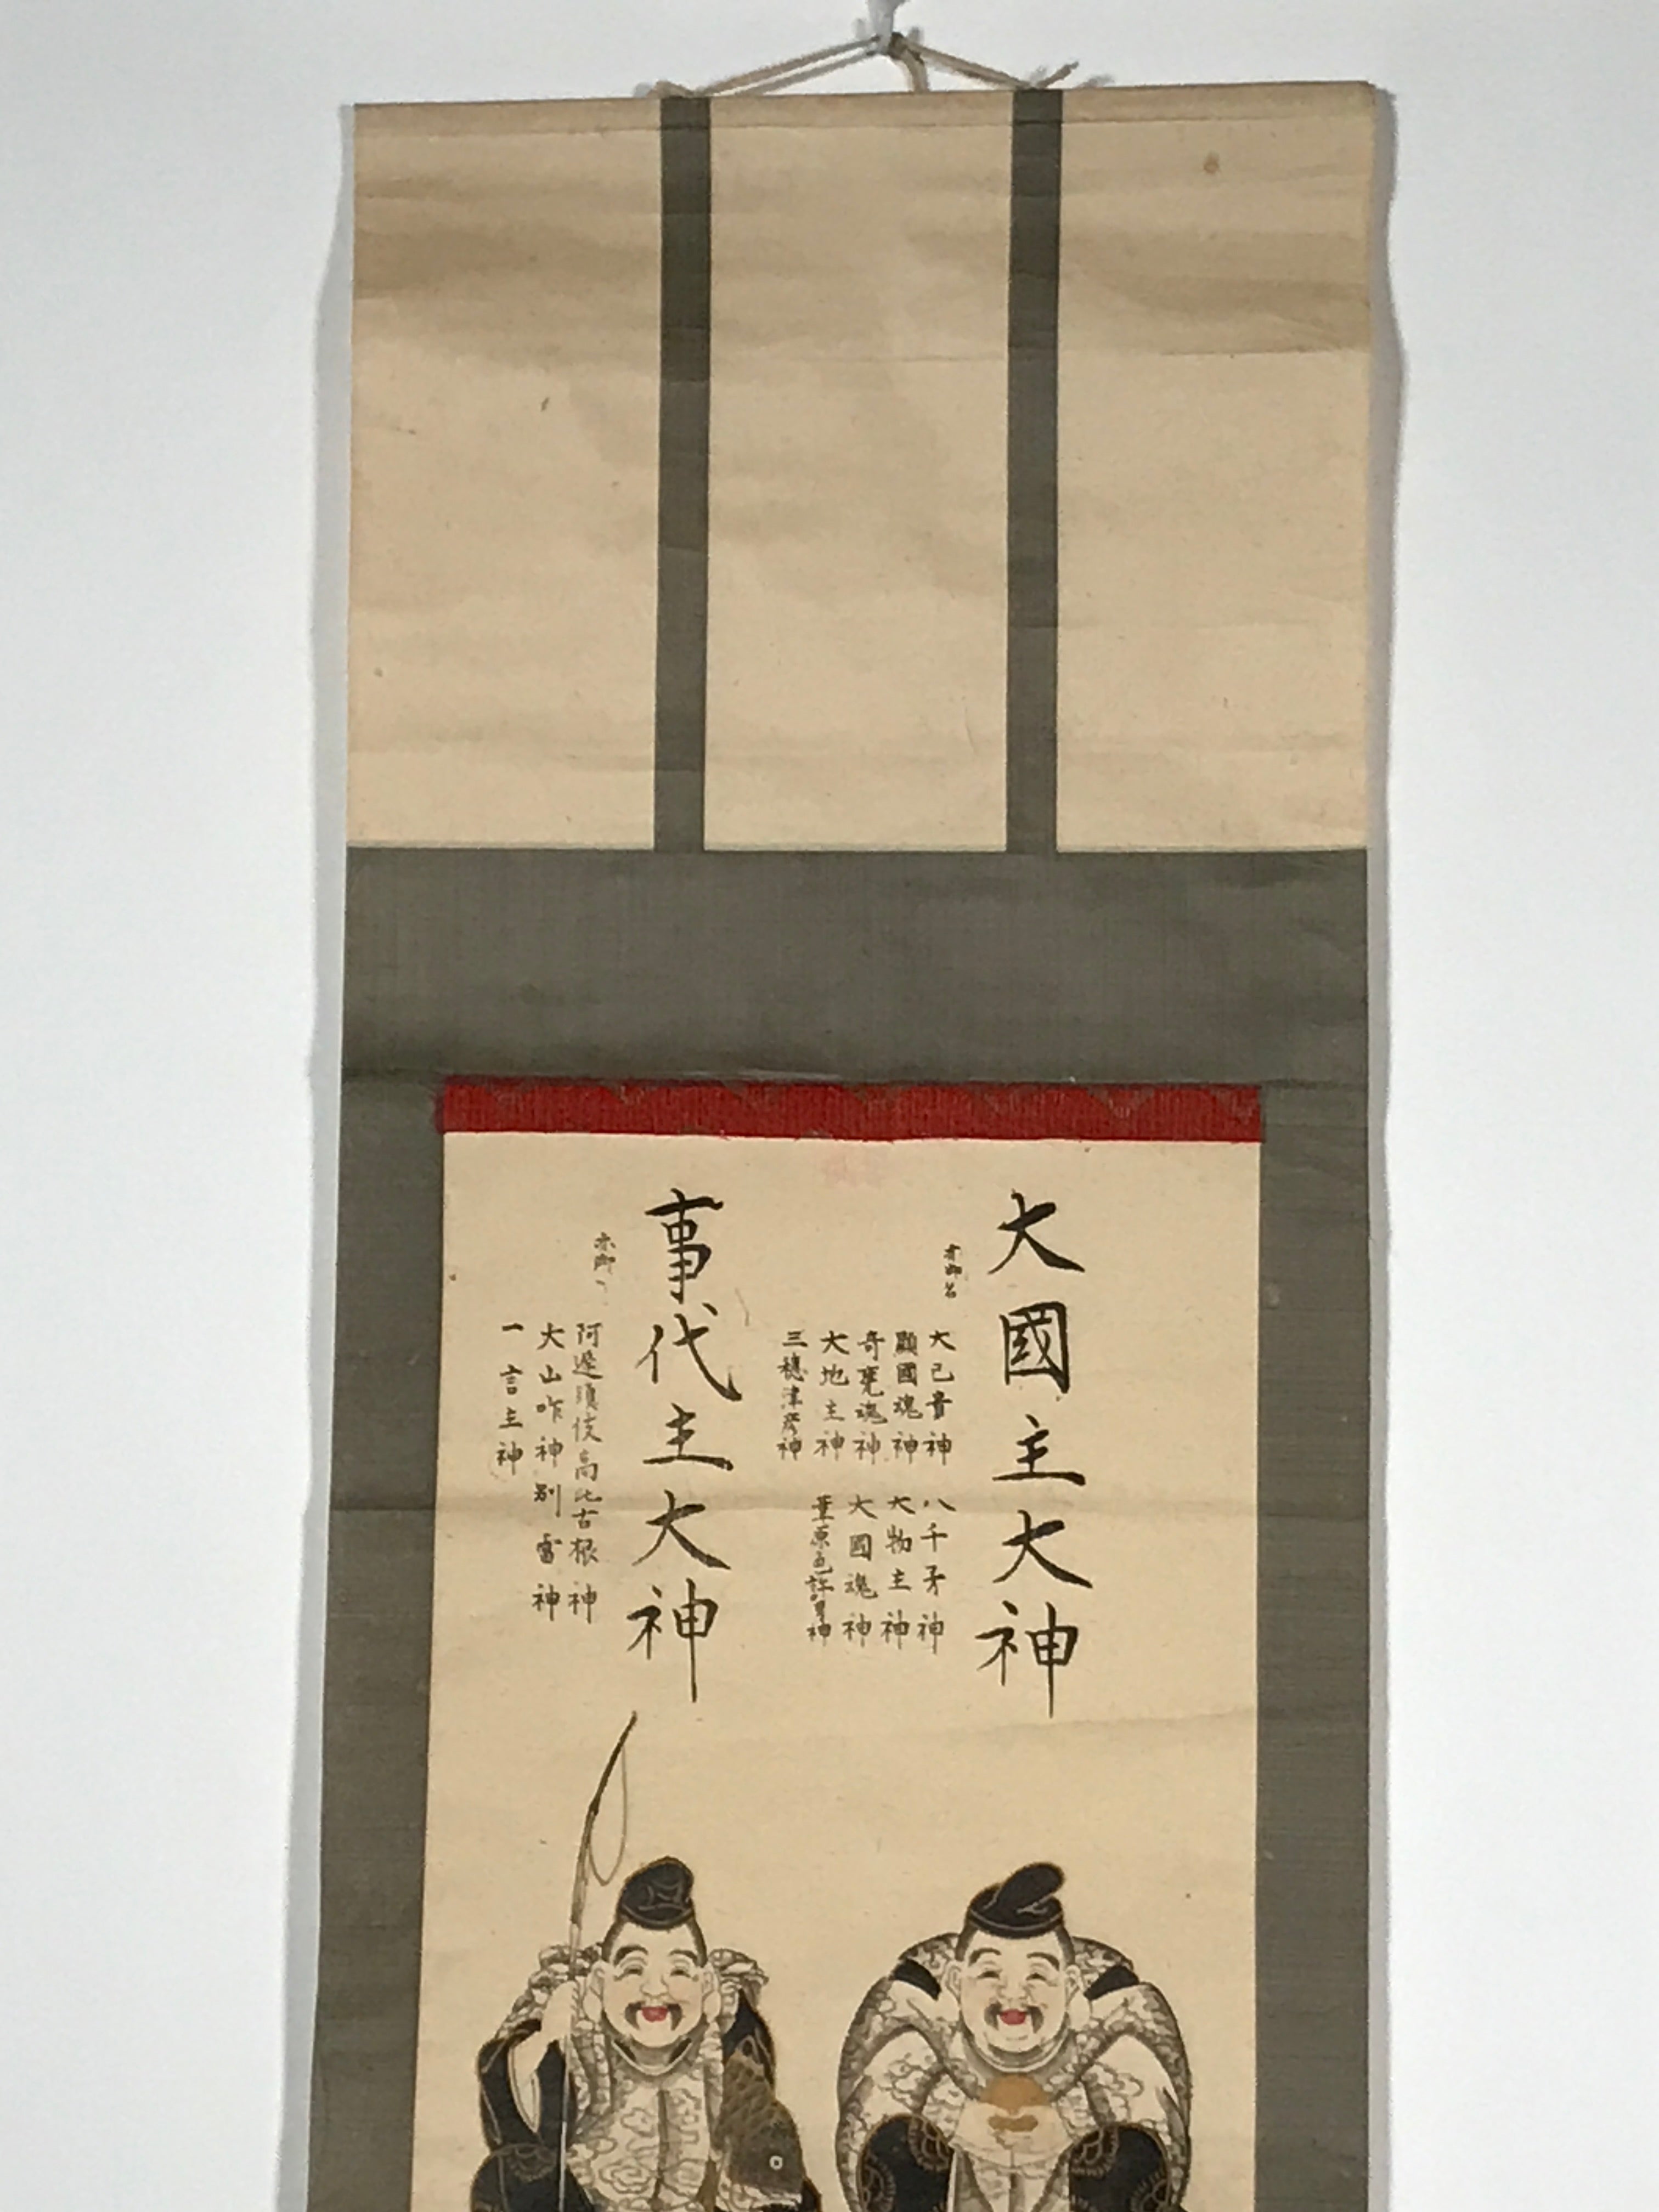 大國主大神
亦御名
大己貴神
八千矛神
顯國魂神
大物主神
奇甕魂神
大國魂神
大地主神
葦原色許男神
三穗津彦神
事代主大神
亦御
阿遲須伎高比古根神
大山咋神別雷神
一言主神